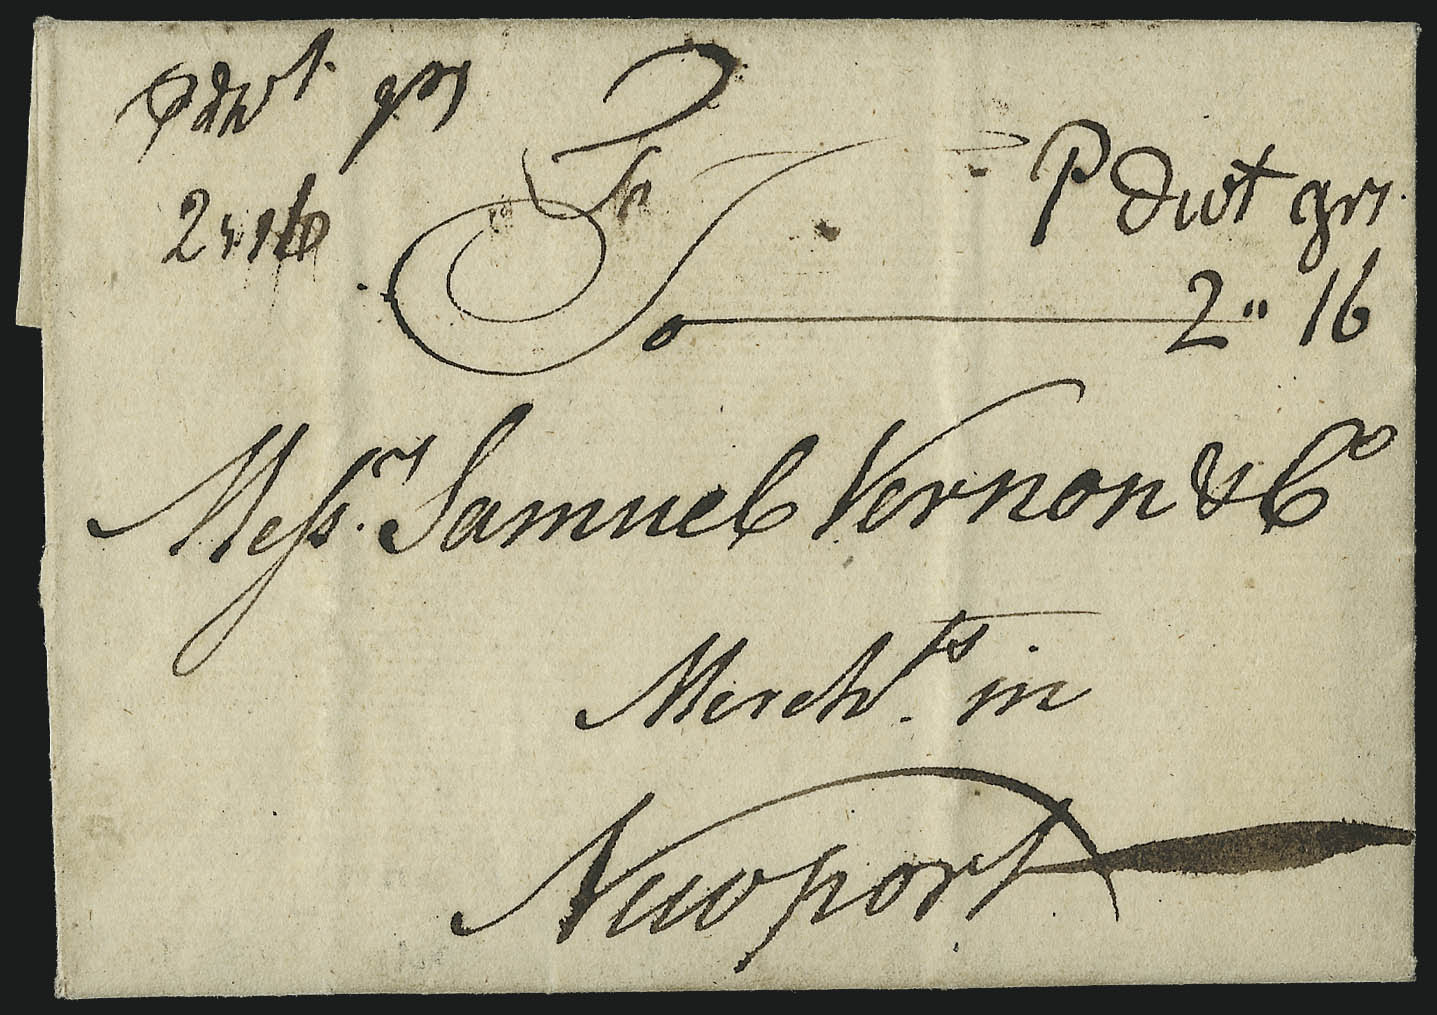 P dwt. grs
2 " 16
P dwt grs.
2 " 16
To
Messrs. Samuel Vernon & Co
Merchts. in
Newport